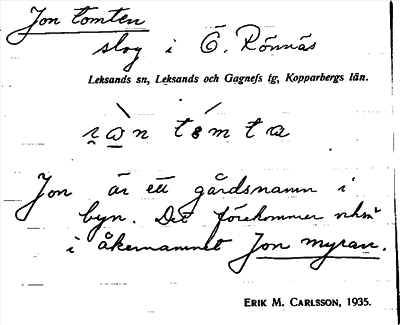 Jon tomten
slog i Ö. Rönnäs
Leksands sn, Leksands och Gagnefs tg, Kopparbergs län.
Jon är ett gårdsnamn i
byn. Det förekommer
i åkernamnet Jon myran.
ERIK M. CARLSSON, 1935.